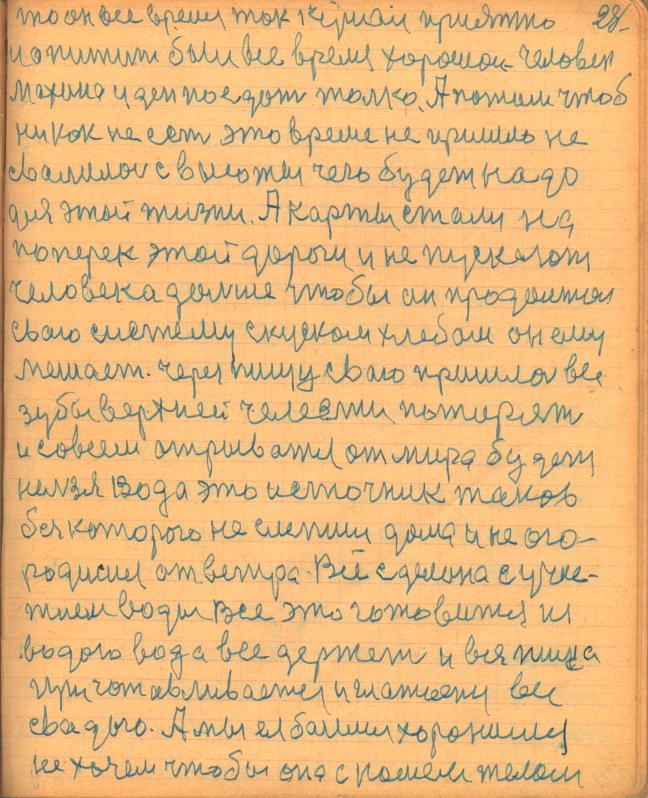 то он все время ток кушал приятно 28.
и опитит был все время хорошои человек
и ден поедат толко. А потом чтоб
никак не это време не пришло не
свалилос с высоты чего будет надо
для этой жизни. А карты стали на
поперек этой дорогы и не пускают
человека дольше чтобы он продолжал
сваю систему скуском хлебом он ему
мешает. Через пищу сваю пришлос все
зубы верхней челести потирят
и совсем отрыватся от мира будет
нелзя Вода это источник таков
без которого не слепиш дома и не ого-
родися от ветра. Все сделона с учас-
тием воды Все это готовится из
водою вода все держит и вся пища
приготавливается и все
сводою. А мы ей болши хоронимся
не хочем чтобы она с нашем телом